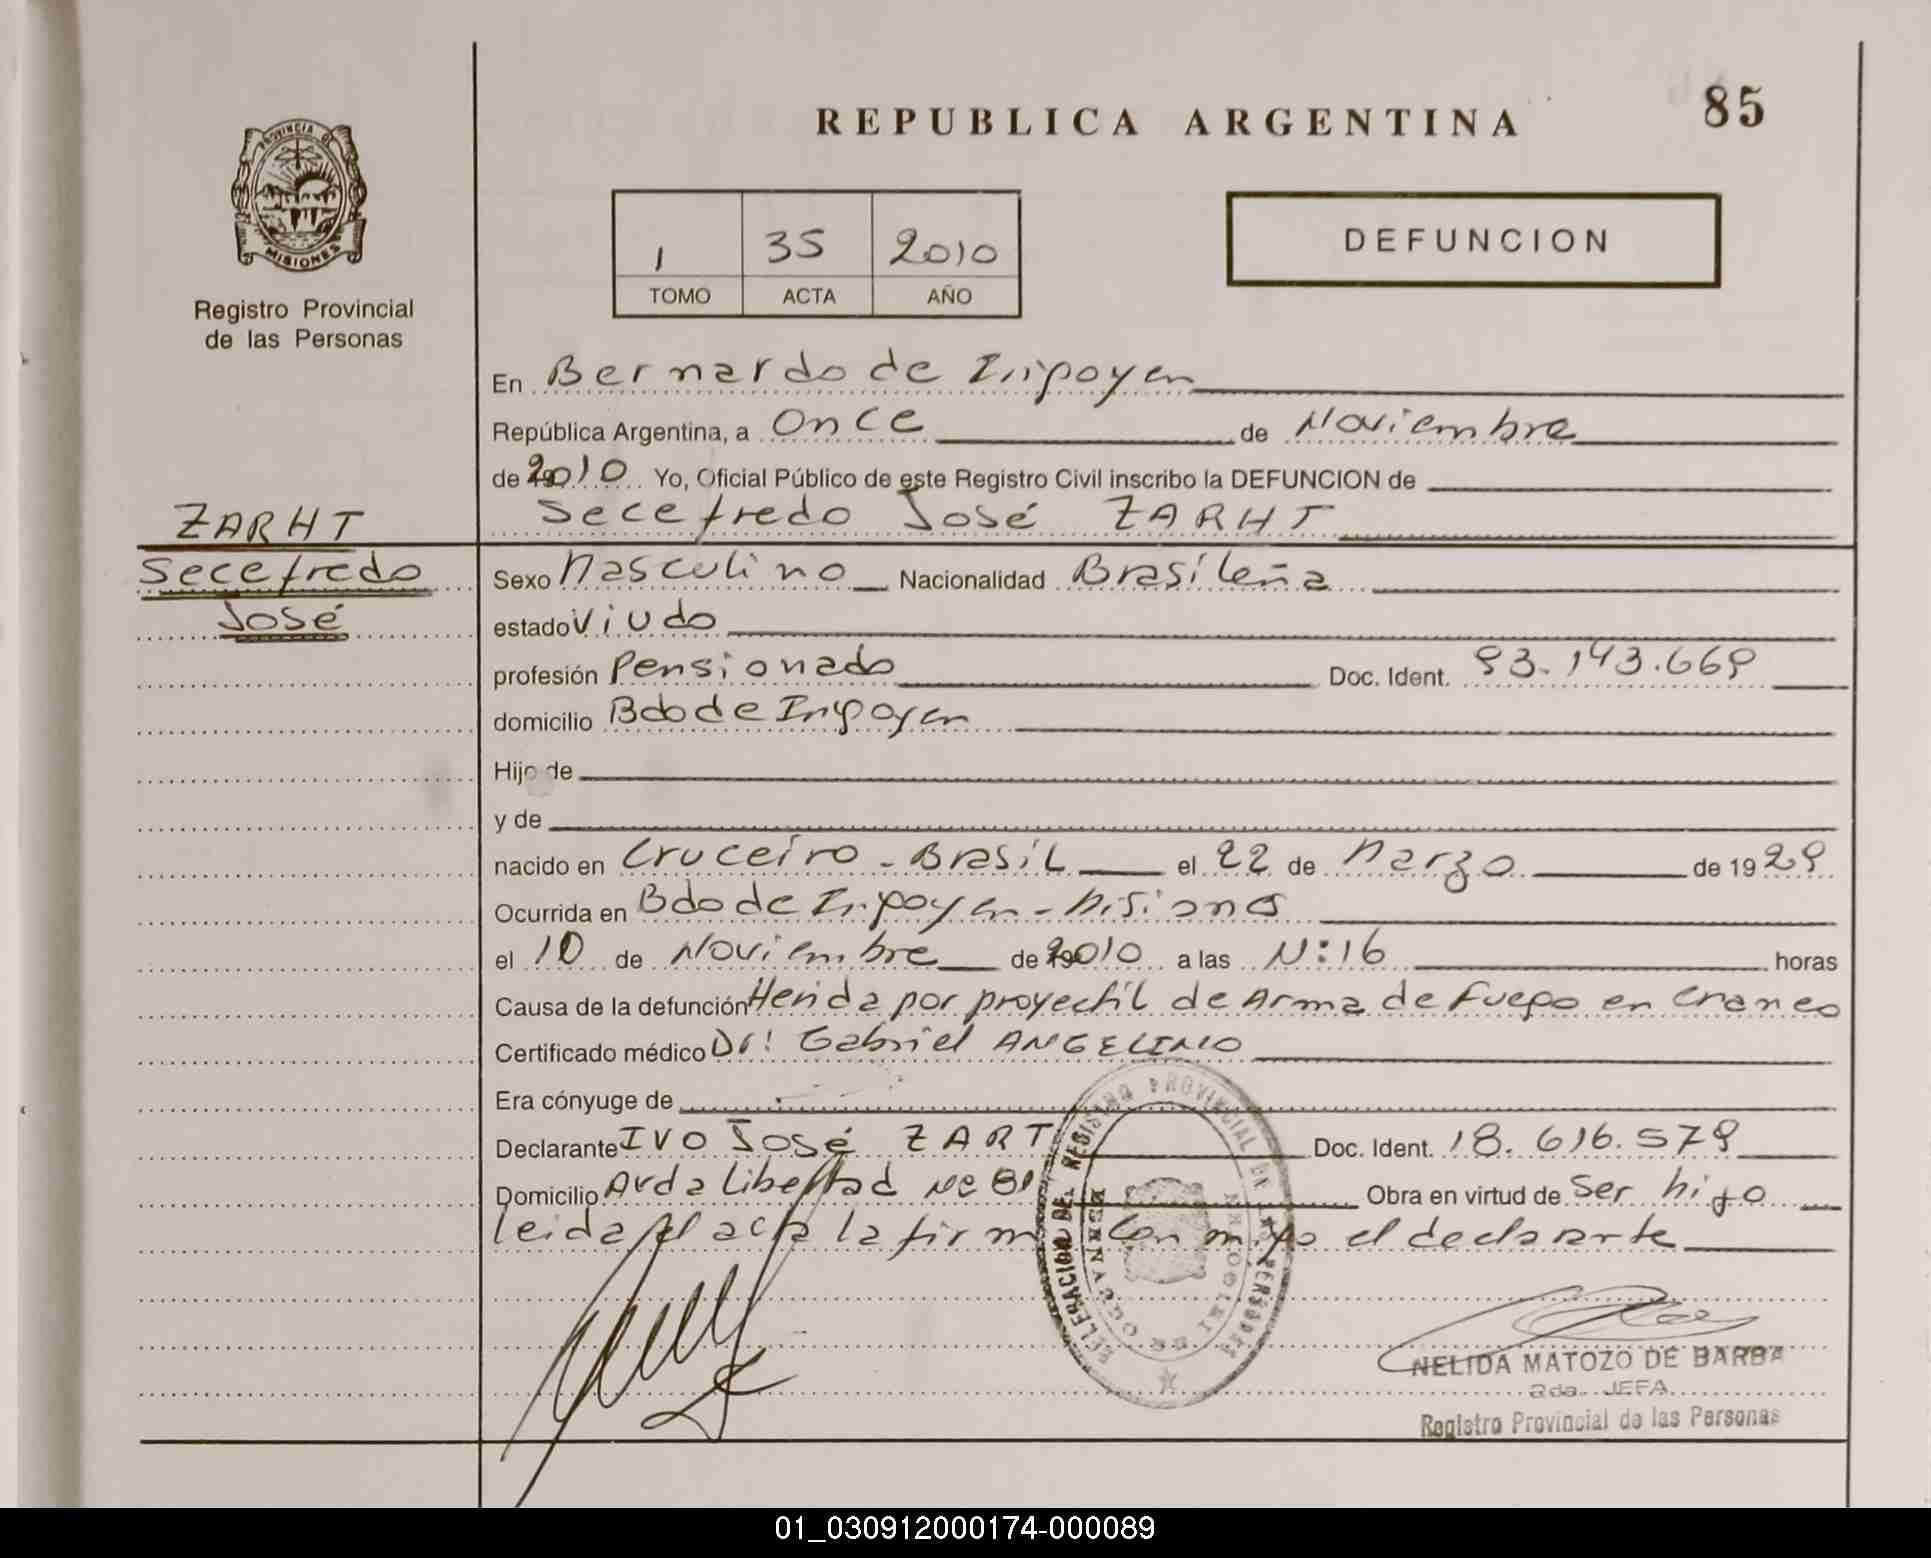 REPUBLICA ARGENTINA
85
PROVINCIA DE
MISIONES
Registro Provincial
de las Personas
1 35 2010
TOMO ACTA AÑO
DEFUNCION
En Bernardo de Irigoyen
República Argentina, a Once de Noviembre
de 2010 Yo, Oficial Público de este Registro Civil inscribo la DEFUNCION de
Secefredo José ZARHT
ZARHT
Secefredo
José
Sexo Masculino Nacionalidad Brasileña
estado Viudo
profesión Pensionado Doc. Ident. 93.143.669
domicilio Bdo de Irigoyen
Hijo de
y de
nacido en Cruceiro - Brasil el 22 de Marzo de 1929
Ocurrida en Bdo de Irigoyen - Misiones
el 10 de Noviembre de 2010 a las 11:16 horas
Causa de la defunción Herida por proyectil de Arma de Fuego en Craneo
Certificado médico Dr! Gabriel ANGELINO
Era cónyuge de
Declarante IVO José ZART Doc. Ident. 18.616.579
Domicilio Avda Libertad Nº 81 Obra en virtud de Ser hijo
leida el acta la firma Con migo el declarante
DELEGACION DEL REGISTRO PROVINCIAL DE LAS PERSONAS
NELIDA MATOZO DE BARBA
2da. JEFA
Registro Provincial de las Personas
01_030912000174-000089